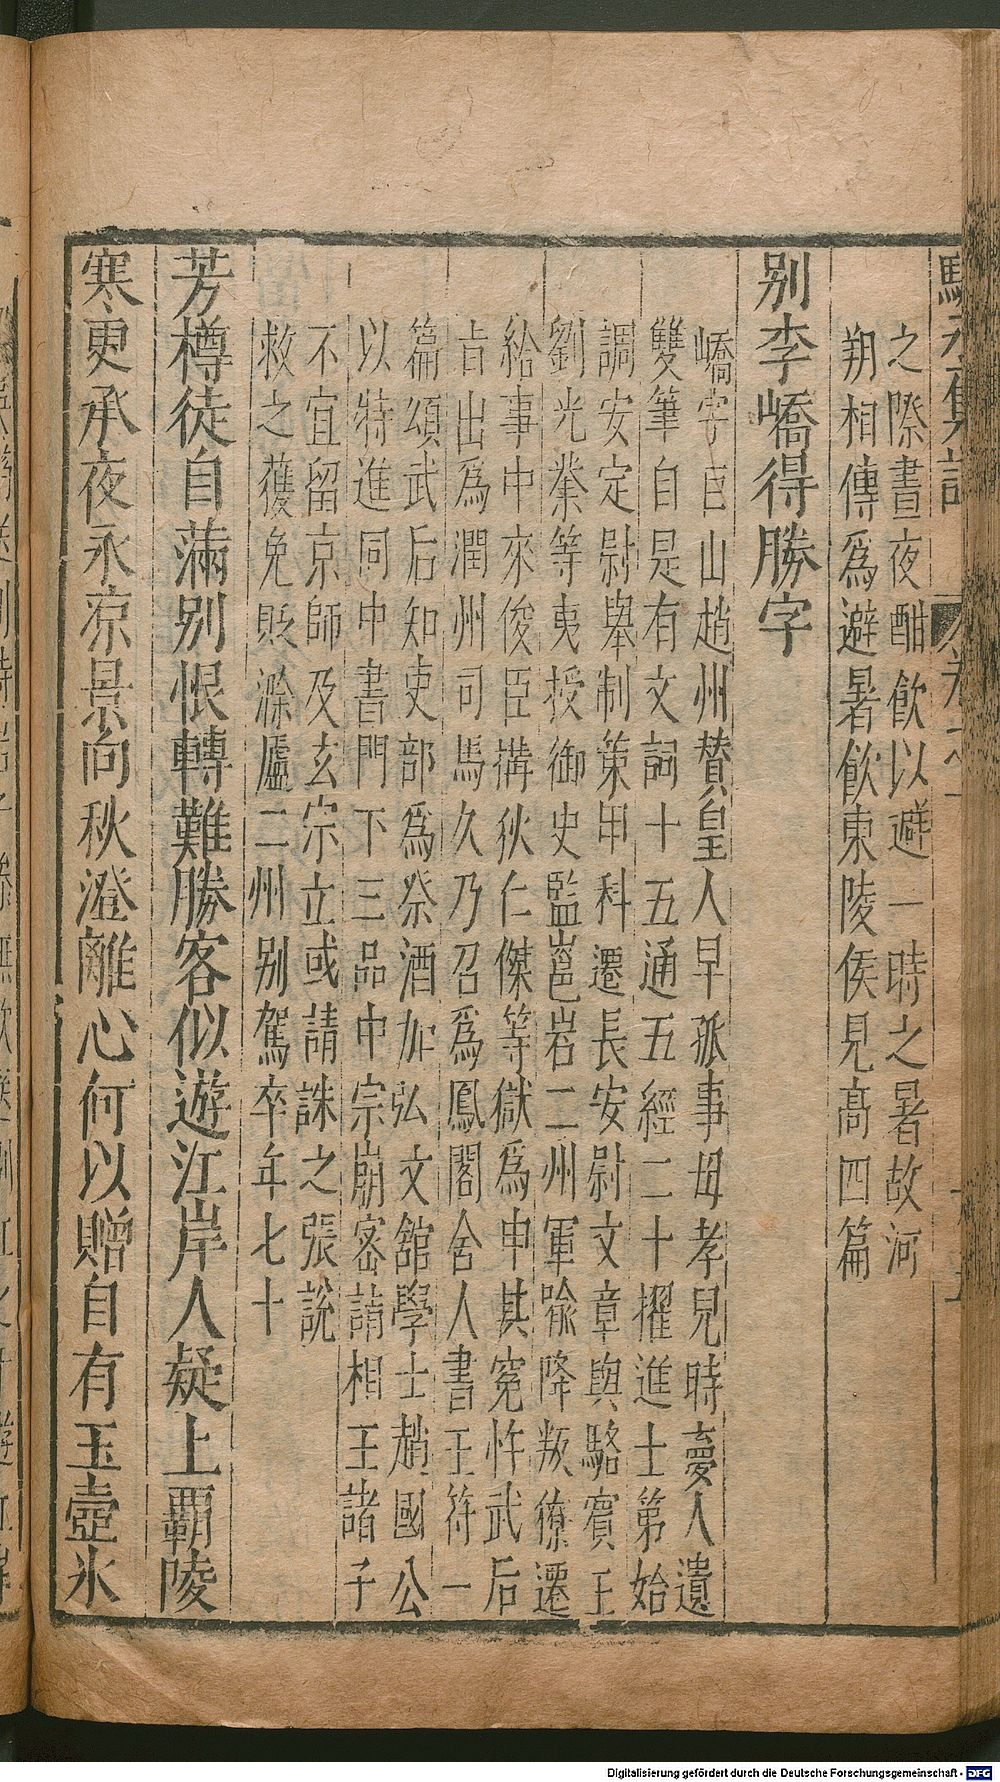 之際晝夜酣飲以避一時之暑故河
朔相傳爲避暑飲東陵侯見高四篇
别李嶠得勝字
嶠字巨山趙州贊皇人早孤事毋孝兒時夢人遺
雙筆自是有文詞十五通五經二十擢進士第始
調安定尉舉制策甲科遷長安尉文章與駱賓王
劉光業等夷授御史監邕岩二州軍隃降叛獠遷
給事中來俊臣搆狄仁傑等獄爲申其寃忤武后
旨出爲潤州司馬久乃召爲鳳閣舍人書王符一
篇頌武后知吏部爲祭酒加弘文舘學士趙國公
以特進同中書門下三品中宗崩宻請相王諸子
不宜留京師及玄宗立或請誅之張說
救之獲免貶滁廬二州别駕卒年七十
芳樽徒自滿别恨轉難勝客似遊江岸人疑上覇陵
寒更承夜永凉景向秋澄離心何以贈自有玉壺氷
Digitalisierung gefördert durch die Deutsche Forschungsgemeinschaft - DFG